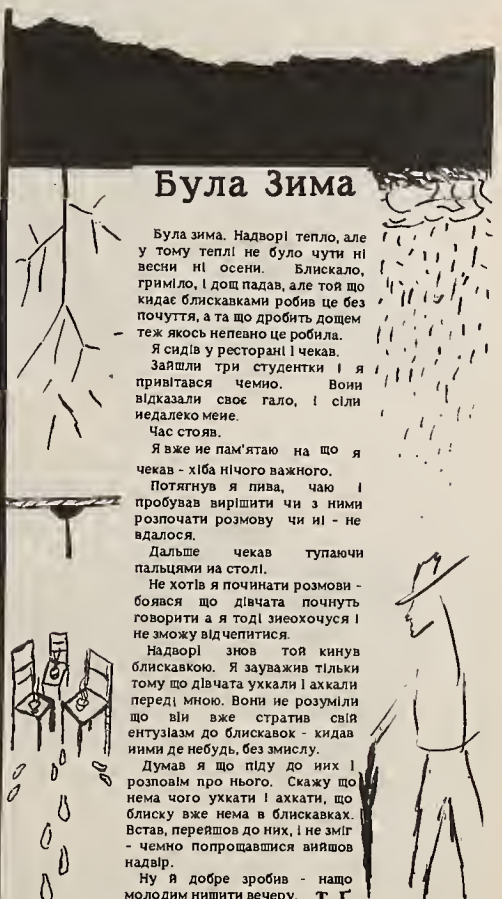 Була Зима
Була зима. Надворі тепло, але
у тому теплі не було чути ні
весни ні осени. Блискало,
гриміло, і дощ падав, але той що
кидає блискавками робив це без
почуття, а та що дробить дощем
теж якось непевно це робила.
Я сидів у ресторані і чекав.
Зайшли три студентки і я
привітався чемно. Вони
відказали своє гало, і сіли
недалеко мене.
Час стояв.
Я вже не пам'ятаю на що я
чекав - хіба нічого важного.
Потягнув я пива, чаю і
пробував вирішити чи з ними
розпочати розмову чи ні - не
вдалося.
Дальше чекав тупаючи
пальцями на столі.
Не хотів я починати розмови -
боявся що дівчата почнуть
говорити а я тоді знеохочуся і
не зможу відчепитися.
Надворі знов той кинув
блискавкою. Я зауважив тільки
тому що дівчата ухкали і ахкали
переді мною. Вони не розуміли
що він вже стратив свій
ентузіазм до блискавок - кидав
ними де небудь, без змислу.
Думав я що піду до них і
розповім про нього. Скажу що
нема чого ухкати і ахкати, що
блиску вже нема в блискавках.
Встав, перейшов до них, і не зміг
- чемно попрощавшися вийшов
надвір.
Ну й добре зробив - нащо
молодим нищити вечеру. Т.Ґ.